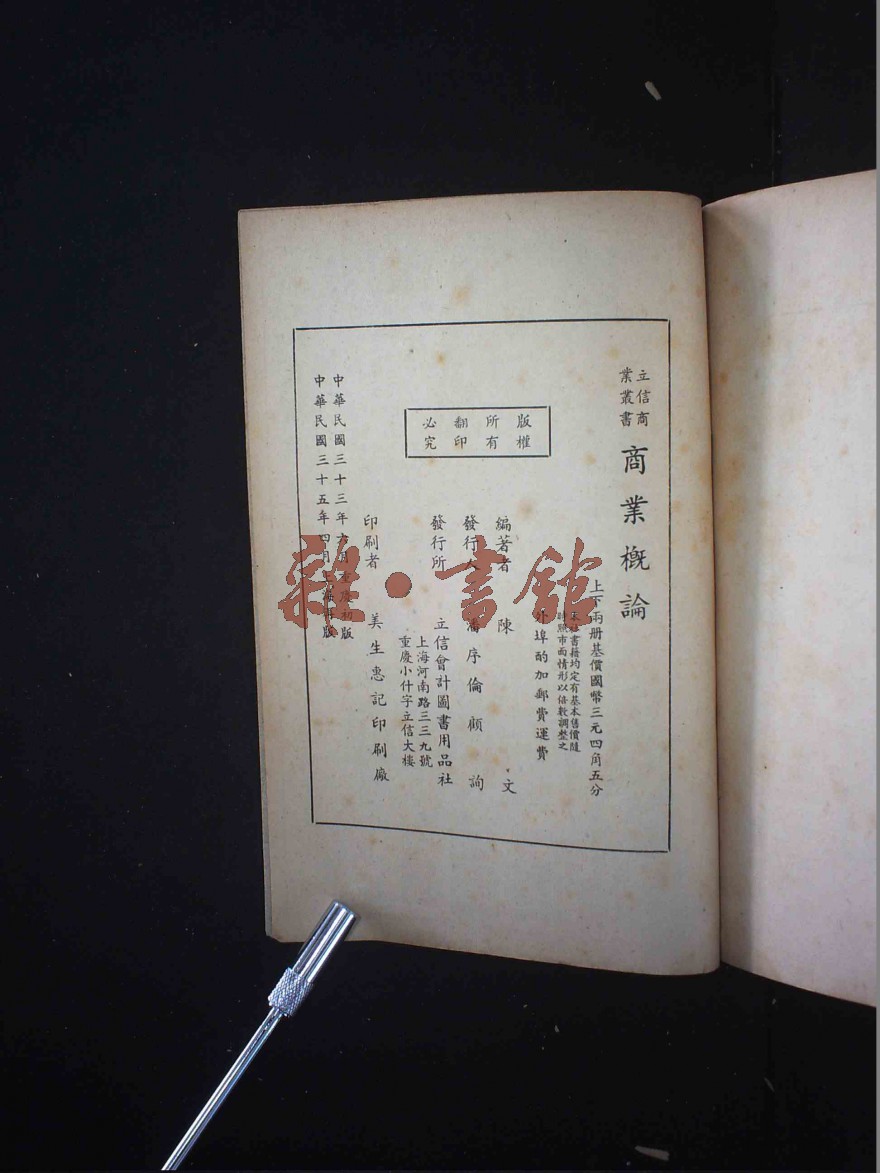 立信商
業叢書
商業概論
上下兩册基價國幣三元四角五分
本社書籍均定有基本售價隨
時照市面情形以倍數調整之
外埠酌加郵費運費
版權
所有
翻印
必究
編著者 陳文
發行人 潘序倫 顧詢
發行所 立信會計圖書用品社
上海河南路三三九號
重慶小什字立信大樓
印刷者 美生惠記印刷廠
中華民國三十三年六月重慶初版
中華民國三十五年四月上海再版
雜·書館